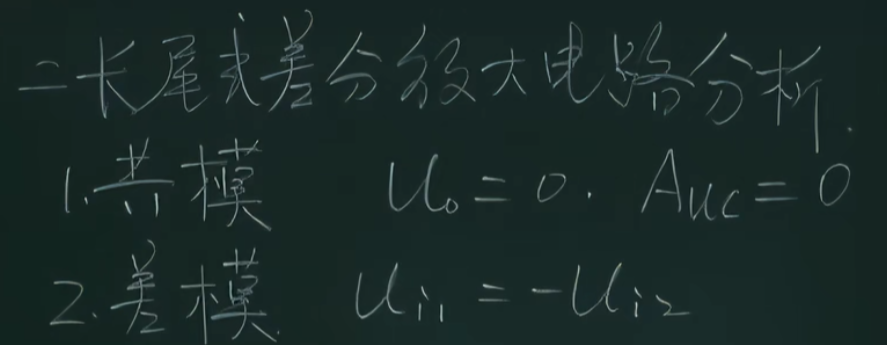 二长尾式差分放大电路分析.
1.共模 Uo=0. Auc=0
2.差模. Ui1=-Ui2